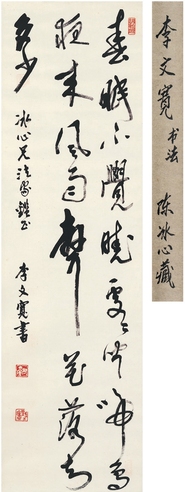 春眠不覺曉處處聞啼鳥
夜来風雨聲花落知
多少
冰心兄法家鑑正
李文寬書
李文寬
书法
陈冰心藏